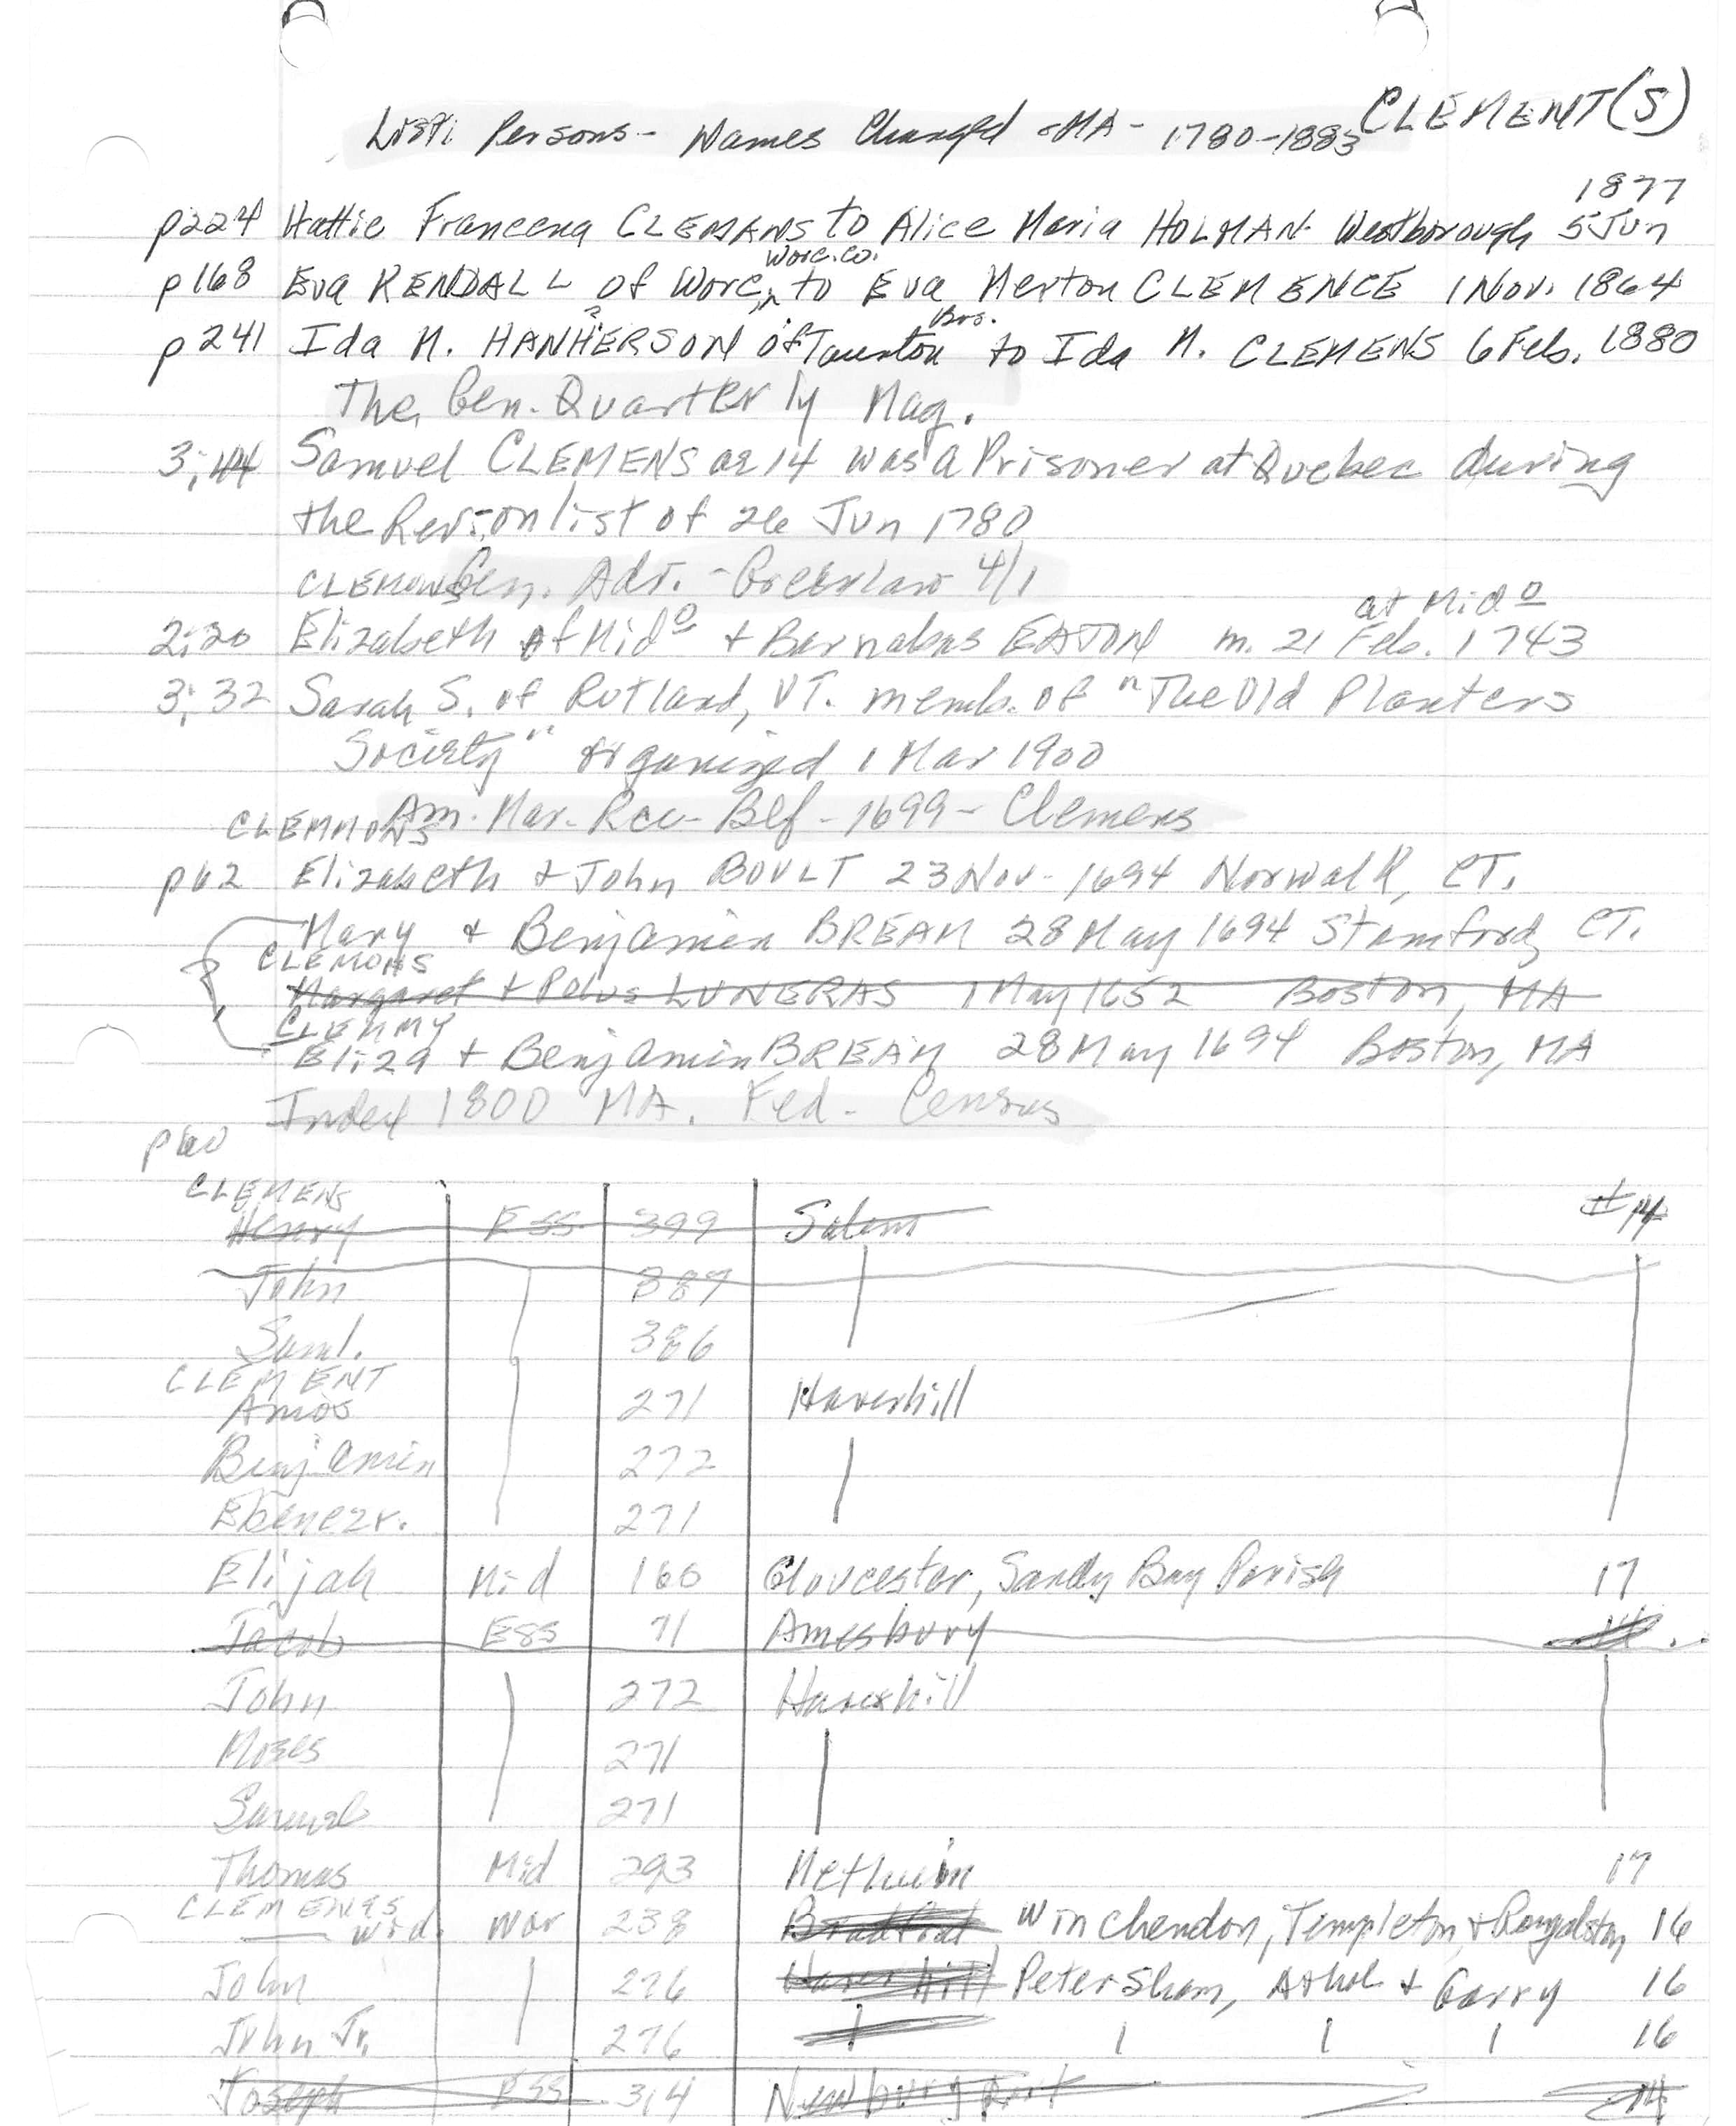 CLEMENT(S)
List: Persons - Names Changed - MA - 1780-1883
1877
p224 Hattie Francena CLEMANS to Alice Maria HOLMAN. Westborough 5 Jun
Worc. Co.
p168 Eva KENDALL of Worc, to Eva Merton CLEMENCE 1 Nov. 1864
? Brs.
p241 Ida M. HANHERSON of Taunton to Ida M. CLEMENS 6 Feb. 1880
The Gen. Quarterly Mag.
3:44 Samuel CLEMENS ae 14 was a Prisoner at Quebec during
the Rev: on list of 26 Jun 1780
CLEMONS Gen. Adv. - Greenlaw 4/1
at Mid o
2:20 Elizabeth of Mid o + Barnabas EATON m. 21 Feb. 1743
3:32 Sarah S. of Rutland, VT. memb. of "The Old Planters
Society" organized 1 Mar 1900
CLEMMONS Am. Mar. Rec- Bef - 1699 - Clemens
p62 Elizabeth + John BOULT 23 Nov. 1694 Norwalk, CT.
Mary + Benjamin BREAM 28 May 1694 Stamfrod CT.
CLEMONS
Margaret + Polus LUNERAS 1 May 1652 Boston, MA
CLEMMY
Eliza + Benjamin BREAM 28 May 1694 Boston, MA
Index 1800 MA. Fed. Census
p60
CLEMENS
Henry ESS 399 Salem #14
John 387
Saml. 386
CLEMENT
Amos 271 Haverhill
Benjamin 272
Ebenezr. 271
Elijah Mid 160 Gloucester, Sandy Bay Parish 17
Jacob ESS 71 Amesbury 14
John 272 Haverhill
Moses 271
Samuel 271
Thomas Mid 293 Methuen 17
CLEMENTS
— wid. Wor 238 Bradford Winchendon, Templeton, + Royalston 16
John 276 Haverhill Petersham, Athol + Garry 16
John Jr. 276 16
Joseph ESS 314 Newburyport 14